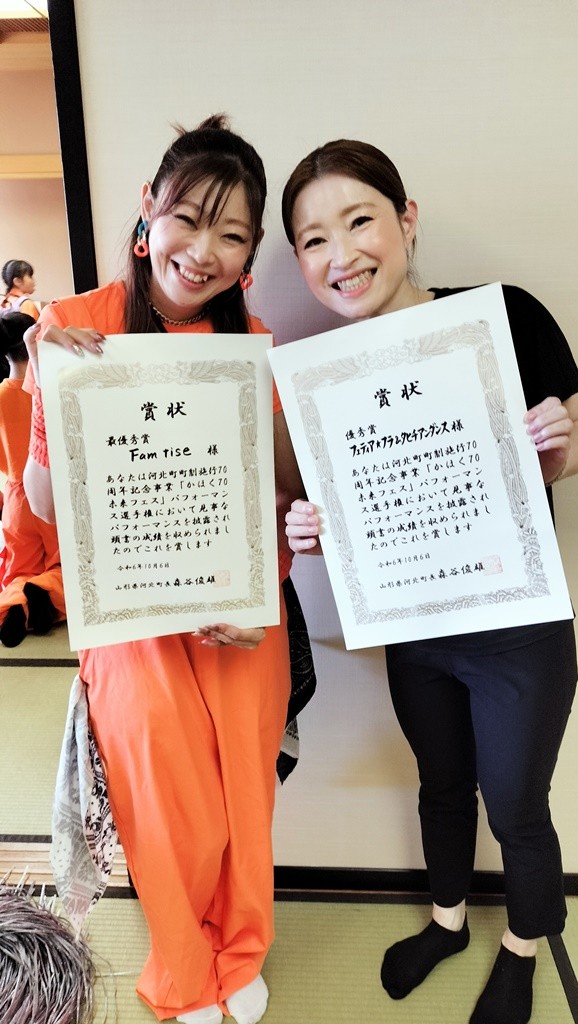 賞状
最優秀賞
Famtise 様
あなたは河北町町制施行70
周年記念事業「かほく70
未来フェス」パフォーマン
ス選手権において見事な
パフォーマンスを披露され
頭書の成績を収められまし
たのでこれを賞します
令和6年10月6日
山形県河北町長 森谷俊雄
賞状
優秀賞
様
あなたは河北町町制施行70
周年記念事業「かほく70
未来フェス」パフォーマン
ス選手権において見事な
パフォーマンスを披露され
頭書の成績を収められまし
たのでこれを賞します
令和6年10月6日
山形県河北町長 森谷俊雄